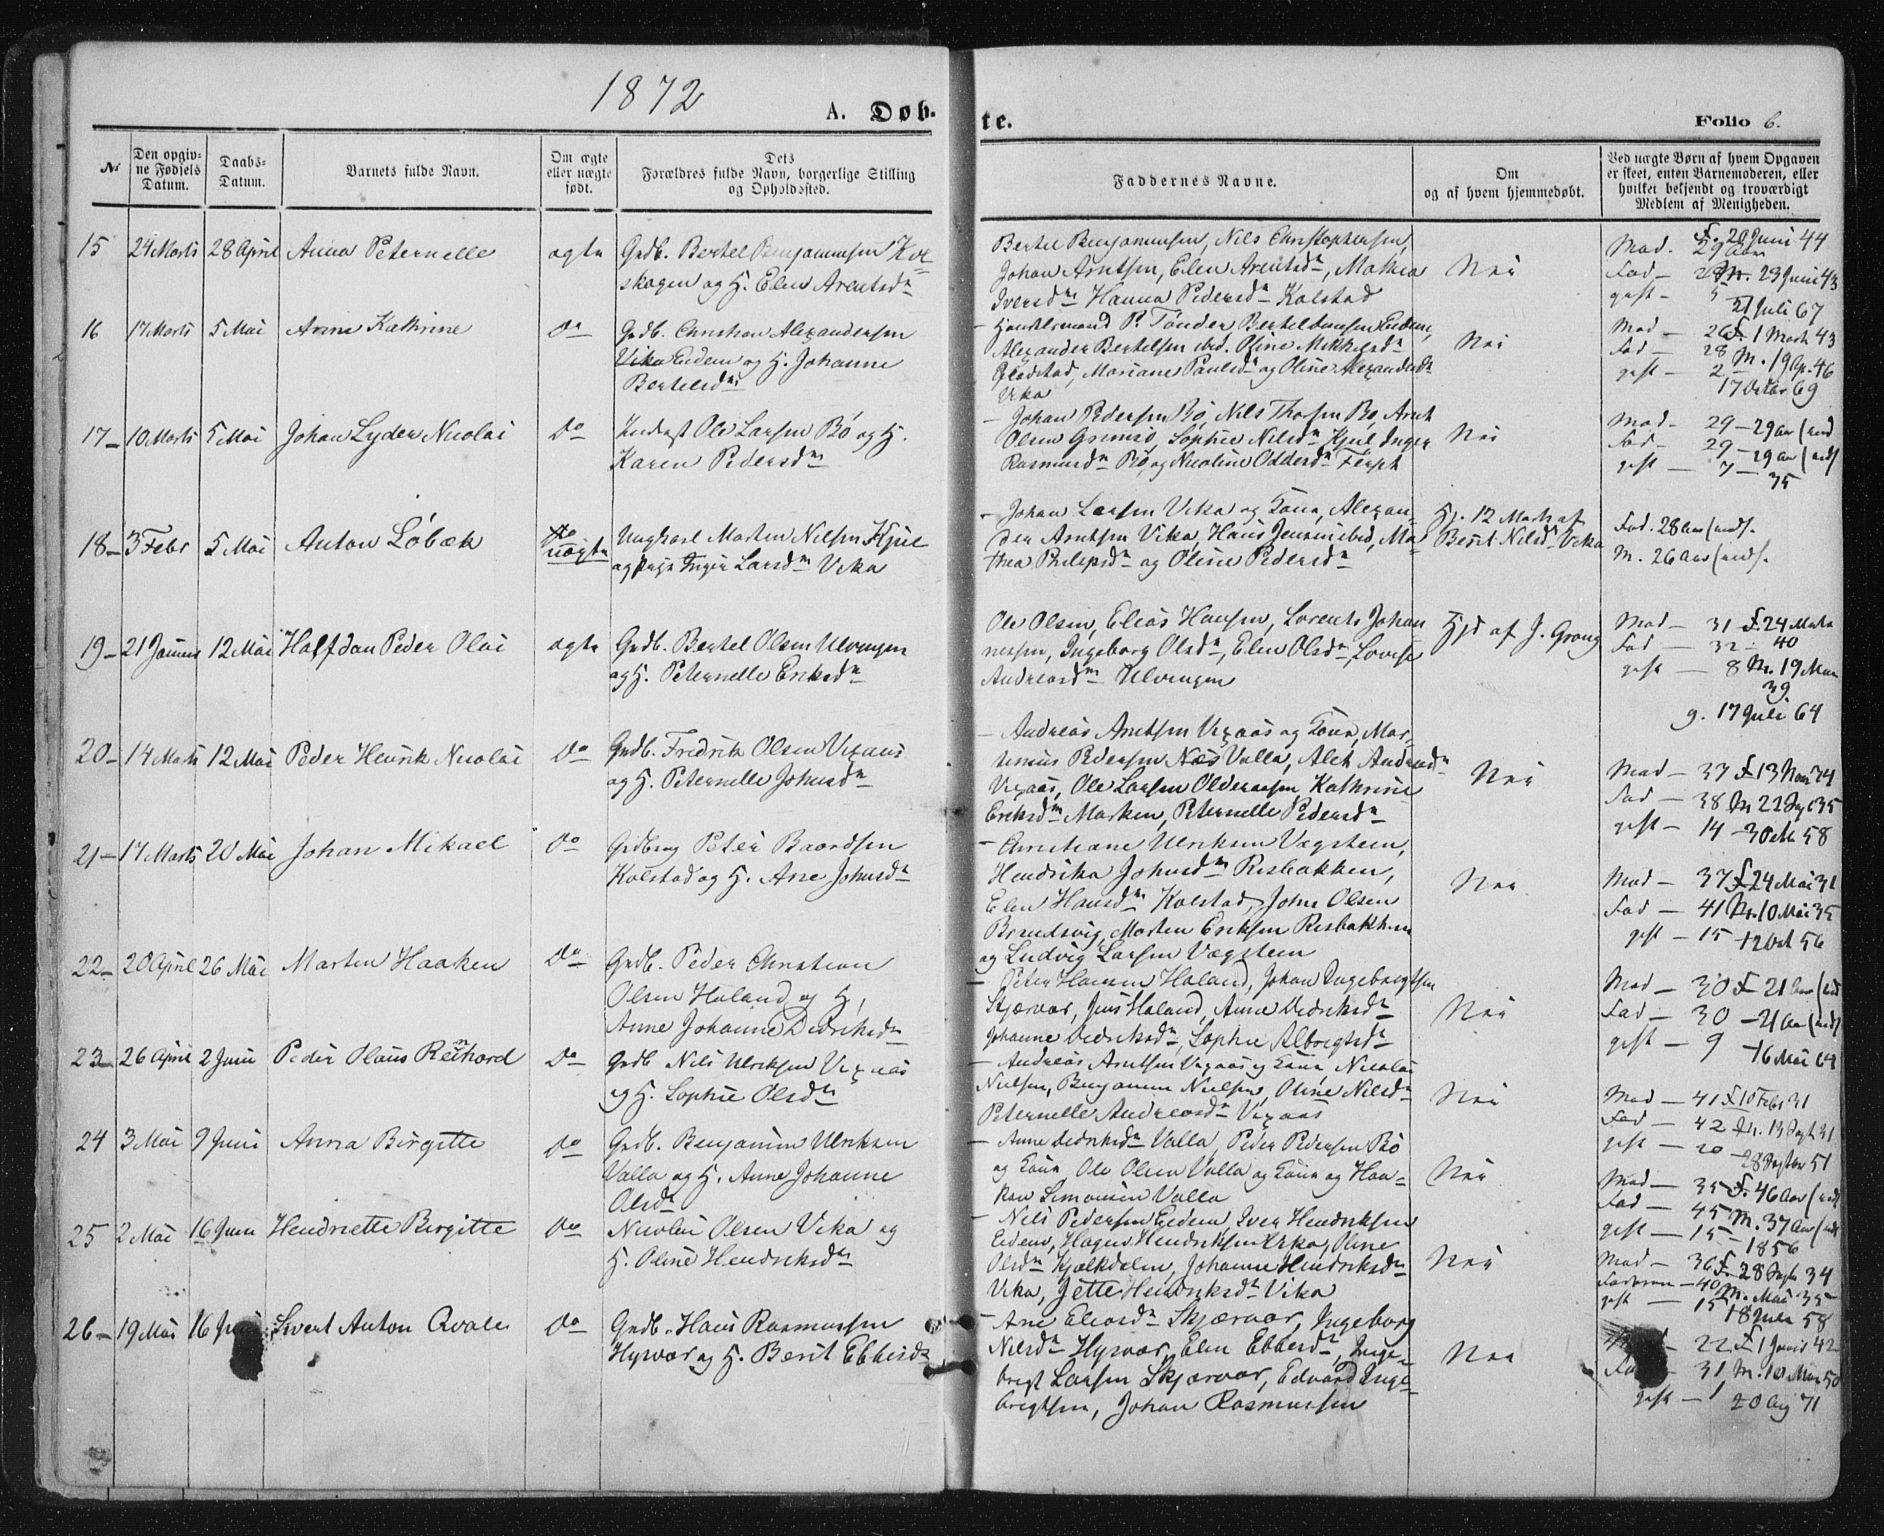 1872
A. Døb-
te.
Folio 6.
№
Den opgiv-
ne Fødsels
Datum.
Daabs-
Datum.
Barnets fulde Navn.
Om ægte
eller uægte
født.
Dets
Forældres fulde Navn, borgerlige Stilling
og Opholdssted.
Faddernes Navne.
Om
og af hvem hjemmedøbt.
Ved uægte Børn af hvem Opgaven
er skeet, enten Barnemoderen, eller
hvilket bekjendt og troværdigt
Medlem af Menigheden.
15 24 Marts 28 April Anna Peternelle ægte Grdb. Bertel Benjaminsen
skogen og H. Elen Arentsdn
Bertel Benjaminsen, Nils Christophersen,
Johan Arntsen, Elen Arentsdn, Mathea
Iversdn Hanna Pedersdn Kolstad
Nei
Mod. 29 Aar F. 20 Juni 44
Fad — M. 23 Juni 43
gift — 5 21 Juli 67
16 17 Marts 5 Mai Anne Kathrine Do Grdb. Christian Alexandersen
Vika Eidem og H. Johanne
Bertelsdn
Handelsmand P. Tønder Bertel Eidem,
Alexander Bertelsen ibid. Oline Mikkelsdn
Mariane Paulsdn og Oline Alexandersdn
Vika
Nei
Mod — 26 F. 1 Marts 43
Fad — 28 M. 19 Ap. 46
gift — 2 17 Octbr 69
17 — 10 Marts 5 Mai Johan Lyder Nicolai Do Inderst Ole Larsen Bø og H.
Karen Pedersdn
— Johan Pedersen Bø, Nils Thorsen Bø, Arnt
Olsen Grimsø, Sophie Nilsdn Kjul Inger
Rasmusdn Bø, og Nicoline Oddersdn
Nei
Mod — 29 — 29 Aar
Fad — 29 — 29 Aar
gift — 7 — 35
18 — 3 Febr 5 Mai Anton Løbæk uægte Ungkarl Morten Nilsen Kjul
og Pige Inger Larsdn Vika
— Johan Larsen Vika og Kona, Alexan-
der Arntsen Vika, Hans Jensen ibid, Ma-
thea Philipsdn og Oline Pedersdn
Hj. 12 Marts af
Berit Nilsdn Vika
Fad. 28 Aar
M. 26 Aar
19 — 21 Januar 12 Mai Halfdan Peder Olai ægte Grdb. Bertel Olsen Ulvingen
og H. Peternelle Eriksdn
Ole Olsen, Elias Hansen, Lorents Johan
nesen, Ingeborg Olsdn, Elen Olsdn, Lovise
Andreasdn Ulvingen
Hjd af J. Grong
Mod — 31 F. 24 Marts
Fad — 32 — 40
gift — 8 M. 19 Marts
39
g. 17 Juli 64
20 — 14 Marts 12 Mai Peder Henrik Nicolai Do Grdb. Fridrik Olsen Vixaas
og H. Peternelle Johnsdn
— Andreas Arntsen Vixaas og Kona, Mar-
Pedersen Næs Valla, Alet Andreasdn
Vixaas, Ole Larsen Olderaasen, Kathrine
Eriksdn Marken, Peternelle Pedersdn
Nei
Mod — 37
Fad — 38 M 22 35
gift — 14 — 30 58
21 — 17 Marts 20 Mai Johan Mikael Do Grdbrug Peter Baardsen
Kolstad og H. Ane Johnsdn
— Christiane Ulriksen Vægstein,
Hendrika Johnsdn Risbakken,
Elen Hansdn Kolstad, Johs Olsen
Brendsvig, Morten Eriksen Risbakken
og Ludvig Larsen Vægstein
Nei
Mod — 37 F 24 Mai 31
Fad — 41 M. 10 Mai 35
gift — 15 — 56
22 — 20 April 26 Mai Morten Haaken Do Grdb. Peder Christian
Olsen Haland og H,
Anne Johanne Didriksdn
— Peter Hansen Haland, Johan Ingebrigtsen
Skjærvær, Jens Haland, Anne Didriksdn
Johanne Didriksdn, Sophie Albregtsdn
Nei
Mod — 30 F — 21 Aar
Fad — 30 — 21 Aar
gift — 9 — 16 Mai 64
23 — 26 April 2 Juni Peder Olaus Reinhard Do Grdb Nils Ulriksen Vixaas
og H. Sophie Olsdn
— Andreas Arntsen Vixaas og Kona Nicolai
Nielsen, Benjamin Nielsen, Oline Nilsdn
Peternelle Andreasdn Vixaas
Nei
Mod — 41 F 10 Febr 31
Fad — 42 M. 13 Sept 31
gift — 20 — 28 Septbr 51
24 3 Mai 9 Juni Anna Birgitte do Grdb. Benjamin Ulriksen
Valla og H. Anne Johanne
Olsdn
— Anne Didriksdn Valla, Peder Pedersen Bø
og Kona, Ole Olsen Valla og Kona og Haa-
kon Simonsen Valla
Nei
Mod — 35 F. 46 Aar
Fad — 45 M. 37 Aar
gift — 15 — 1856
25 2 Mai 16 Juni Hendriette Birgitte Do Nicolai Olsen Vika og
H. Oline Hendriksdn
— Nils Pedersen Eidem, Iver Hendriksen
Eidem, Hagen Hendriksen Vika, Oline
Olsdn Kjølkdalen, Johanne Hendriksdn
Vika, Jette Hendriksdn Vika
Nei
Mod — 36 F. 28 Septbr 34
Faderen — 40 M. Mai 35
gift — 15 18 Juli 58
26 — 19 Mai 16 Juni Sivert Anton Qvale Do Grdb. Hans Rasmussen
Hysvær og H. Berit Ebbesdn
— Ane Eliasdn Skjærvær, Ingeborg
Nilsdn Hysvær, Elen Ebbesdn, Inge-
brigt Larsen Skjærvær, Edvard Inge-
brigtsen, Johan Rasmussen
Nei
22 F 1 Juni 42
Fad — 31 M. 10 Mai 50
gift — 1 20 Aug 71